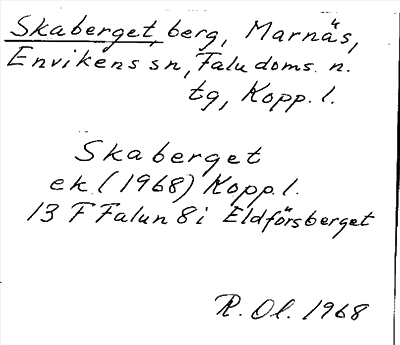 Skaberget, berg, Marnäs,
Envikens sn, Falu doms. n.
tg, Kopp. l.
Skaberget
ek. (1968) Kopp. l.
13 F Falun 8 i Eldförsberget
R. Ol. 1968